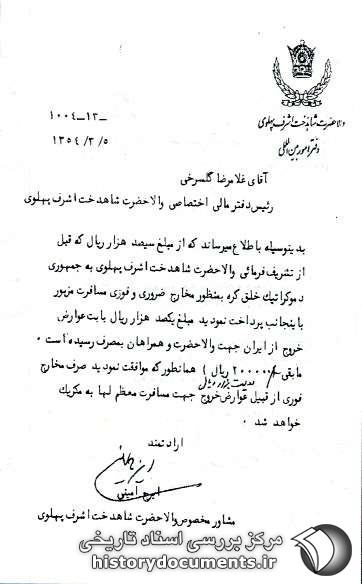 والاحضرت شاهدخت اشرف پهلوی
دفتر امور بین المللی
۱۰۰۴ـ۱۳ـ
۱۳۵۴/۳/۵
آقای غلامرضا گلسرخی
رئیس دفتر مالی اختصاصی والاحضرت شاهدخت اشرف پهلوی
بدینوسیله باطلاع میرساند که از مبلغ سیصد هزار ریال که قبل
از تشریف فرمائی والاحضرت شاهدخت اشرف پهلوی به جمهوری
دموکراتیك خلق کره بمنظور مخارج ضروری و فوری مسافرت مزبور
باینجانب پرداخت نمودید مبلغ یکصد هزار ریال بابت عوارض
خروج از ایران جهت والاحضرت و همراهان بمصرف رسیده است ۰
مابقی ( ۲۰۰۰۰۰ ریال ) همانطور که موافقت نمودید صرف مخارج
دویست هزار ریال
فوری از قبیل عوارض خروج جهت مسافرت معظم لها به مکزیك
خواهد شد ۰
ارادتمند
ایرج امینی
مشاور مخصوص والاحضرت شاهدخت اشرف پهلوی
مرکز بررسی اسناد تاریخی
historydocuments.ir